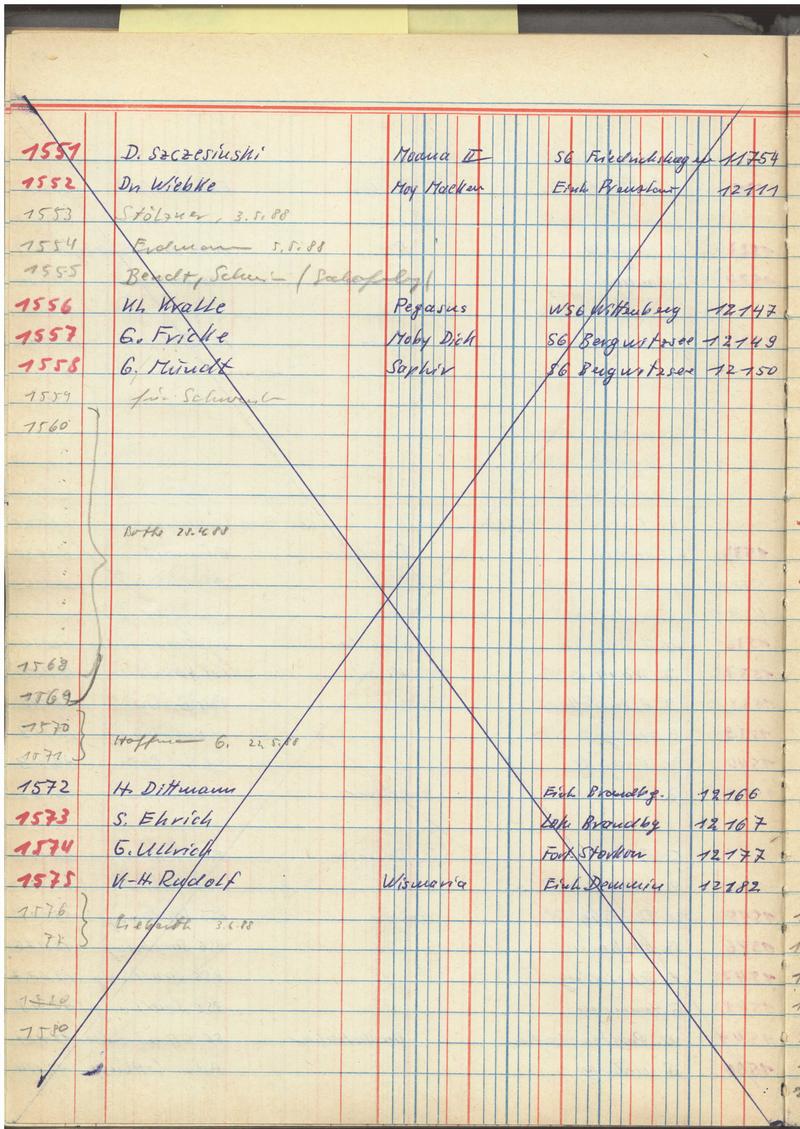 1551 D. Szczesinski Moana II SG Friedrichshagen 11754
1552 Dr. Wiebke Moy Macken Einh. 12111
1553 Stölzner, 3.5.88
1554 Erdmann 5.5.88
1555 Bendt, Schwin
1556 Kh Kralle Pegasus WSG Wittenberg 12147
1557 G. Fricke Moby Dick SG Bergwitzsee 12149
1558 G. Mündt Saphir SG Bergwitzsee 12150
1559 für
1560
Bothe 28.4.88
1568
1569
1570
Hoffmann G. 22.5.88
1571
1572 H. Dittmann Einh. Brandbg. 12166
1573 S. Ehrich Lok Brandbg 12167
1574 G. Ullrich Fort. Storkow 12177
1575 K-H. Rudolf Wismaria Einh. Demmin 12182
1576
3.6.88
77
1580